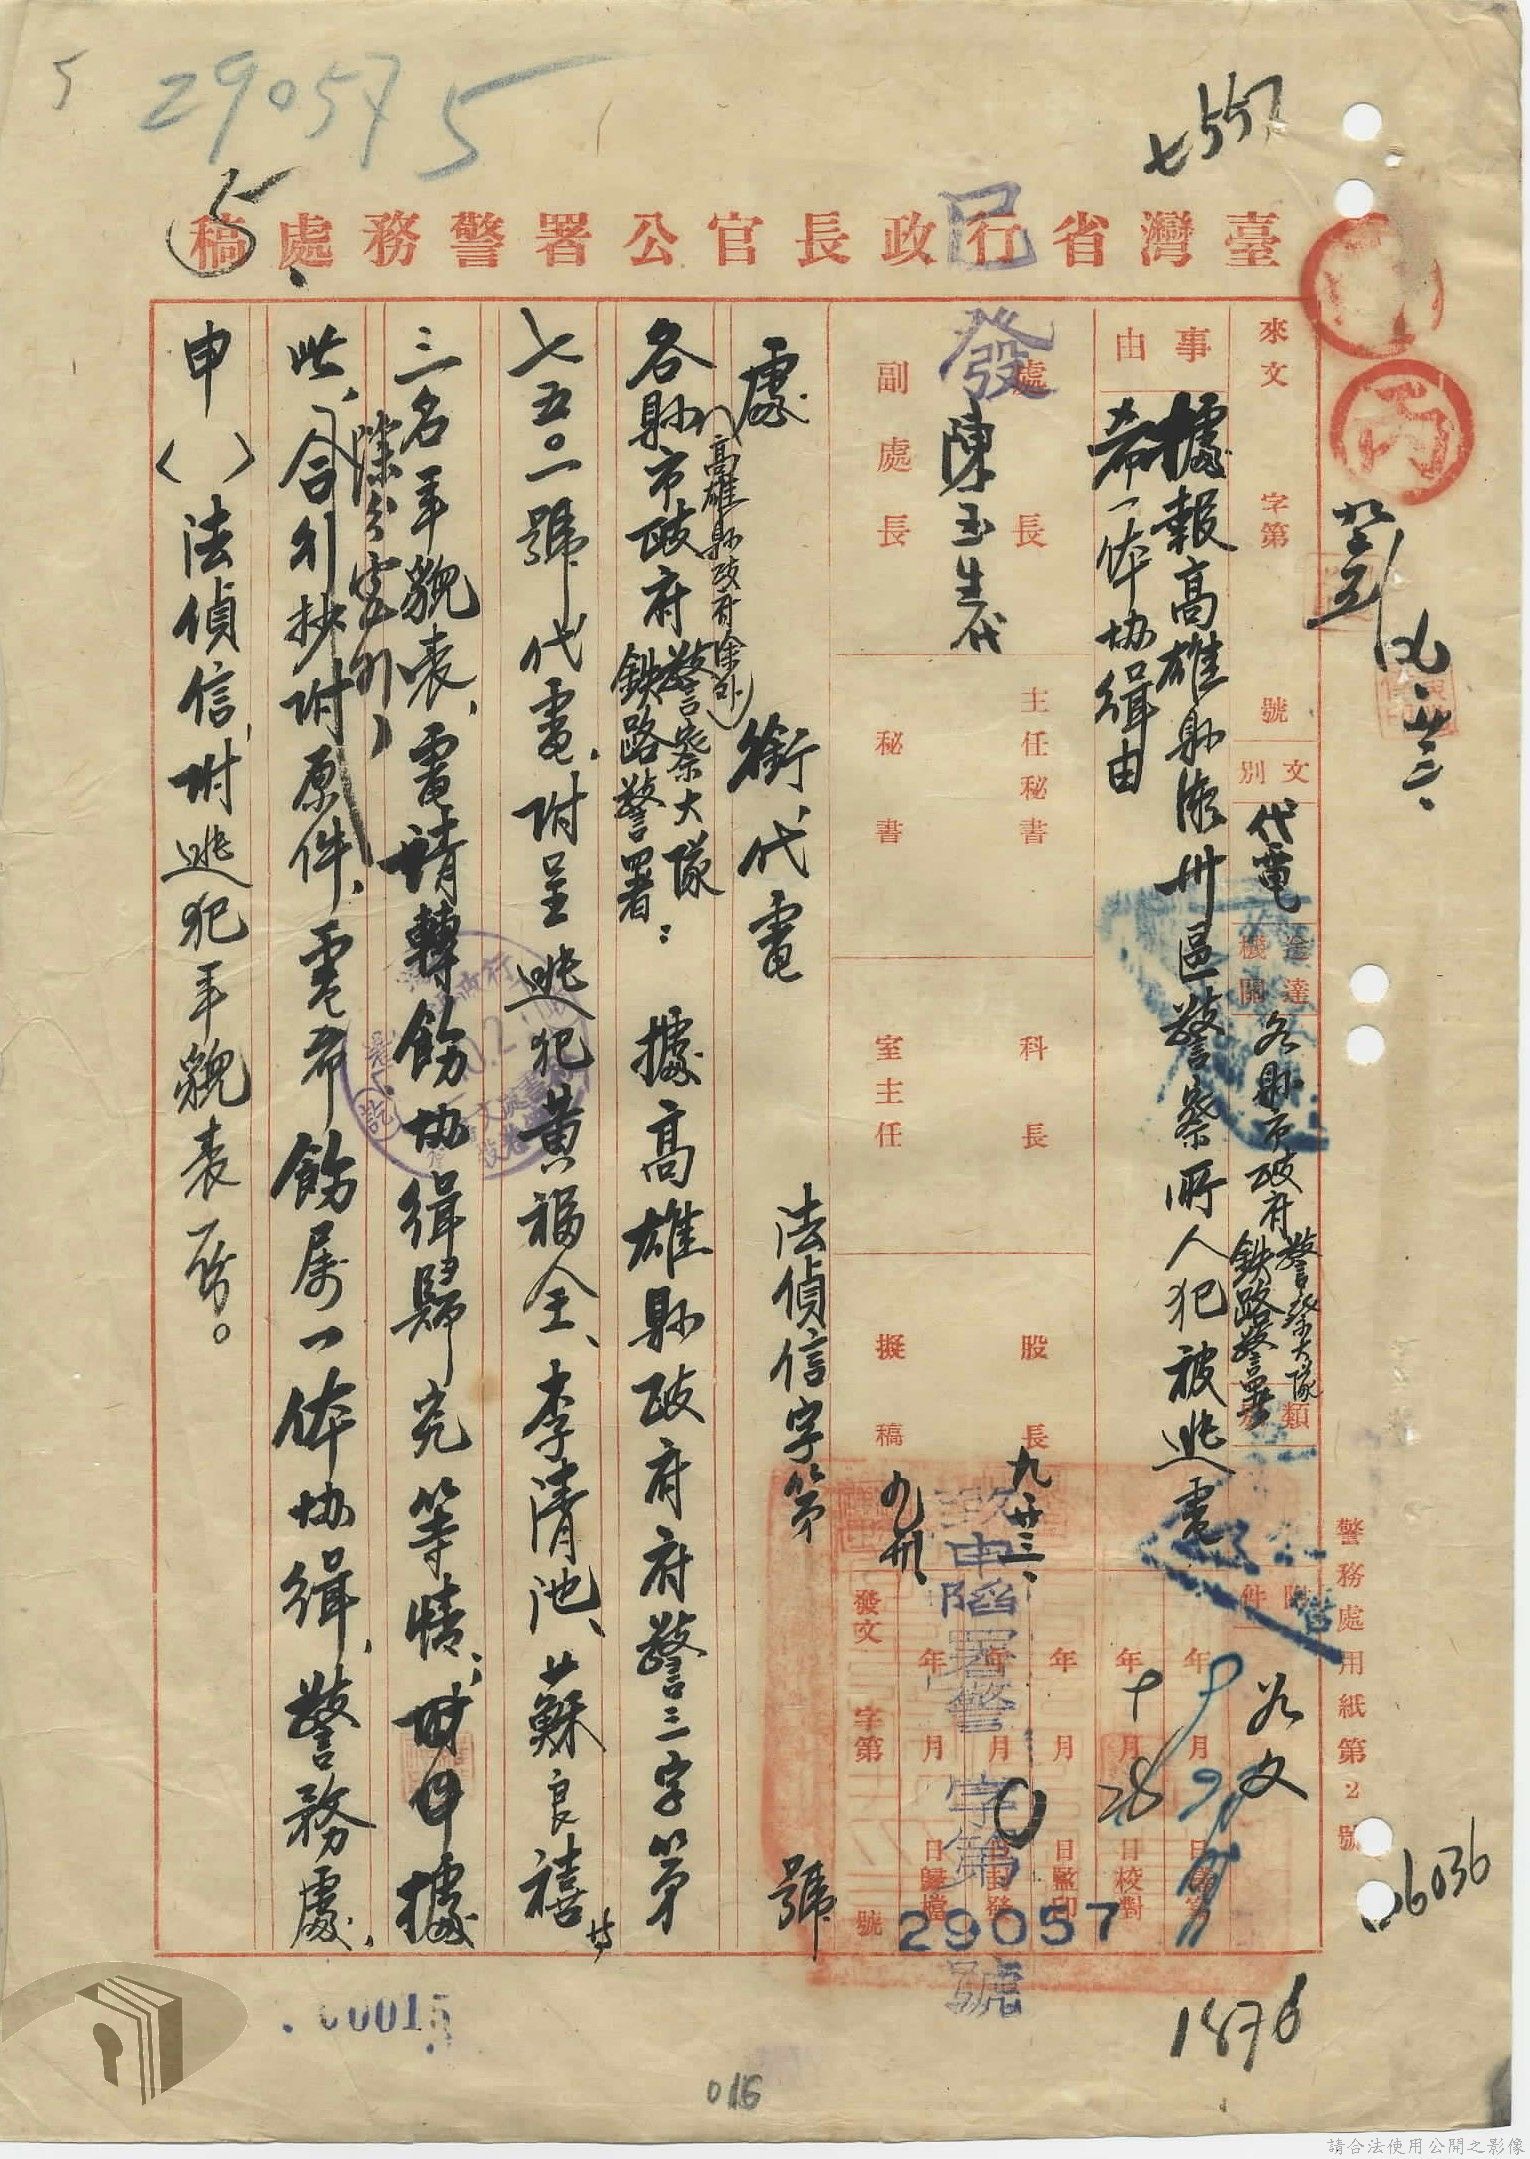 5
290575
七557
5
臺灣省行政長官公署警務處稿
已發
丙
來文 字第 號
文別 代電
送達機關 各縣市政府 警察大隊 鐵路警署
類別
附件 如文
事由
據報高雄縣潮州區警察所人犯被逃電
希一体協緝由
處長 陳玉生代
副處長
主任秘書
秘書
科長
室主任
股長 九廿三、
擬稿
發文 字第 號
年 月 日校對
年 月 日監印
年 月 日封發
年 月 日歸檔
致申陷署警 字第 號
29057
處銜、代電
法偵信字第 號
各縣市政府(高雄縣政府除外)警察大隊鐵路警署：據高雄縣政府府警三字第
七五〇一號代電、附呈逃犯黃福全、李清池、蘇良禧等
三名年貌表、電請轉飭協緝歸究等情、附
據
此、(除分電外)合行抄附原件、電希飭属一体協緝、警務處、
申( )法偵信、附逃犯年貌表一份。
警務處用紙第2號
26036
1876
00015
016
請合法使用公開之影像